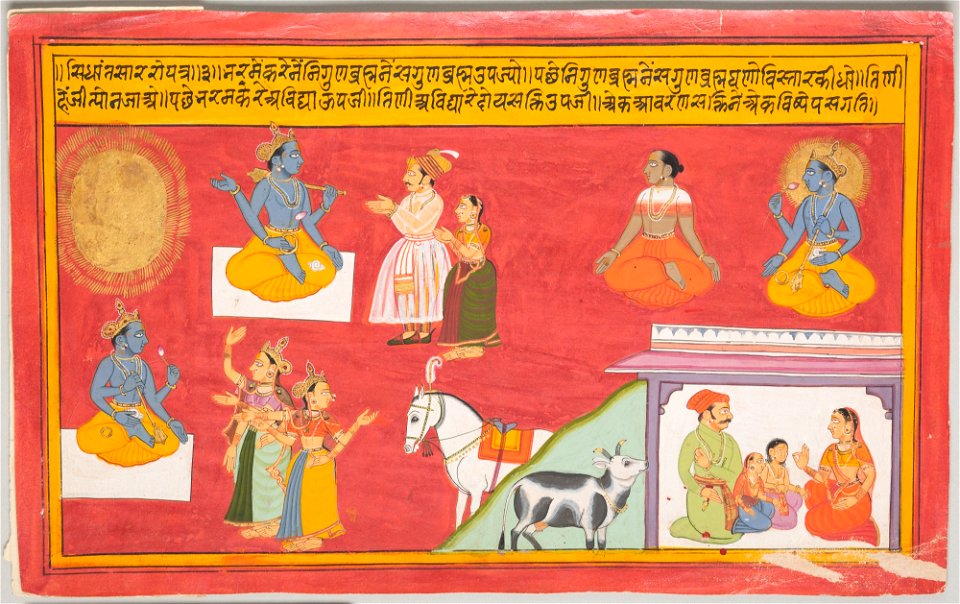 ॥सिधांतसाररोपत्र॥३॥भरमेंकरेनेंनिगुणब्रह्मनेंसगुणब्रह्मउपज्यो॥पछेनिगुणब्रह्मनेंसगुणब्रह्मघणोविस्तारकीधो॥तिणी
हेंजीत्योनजाअे॥पछेभरमकरेअविद्याऊपजी॥तिणीअविद्यारेदोयसक्तिउपजी॥अेकआवरणसक्तिनेंअेकविषेपसगति॥